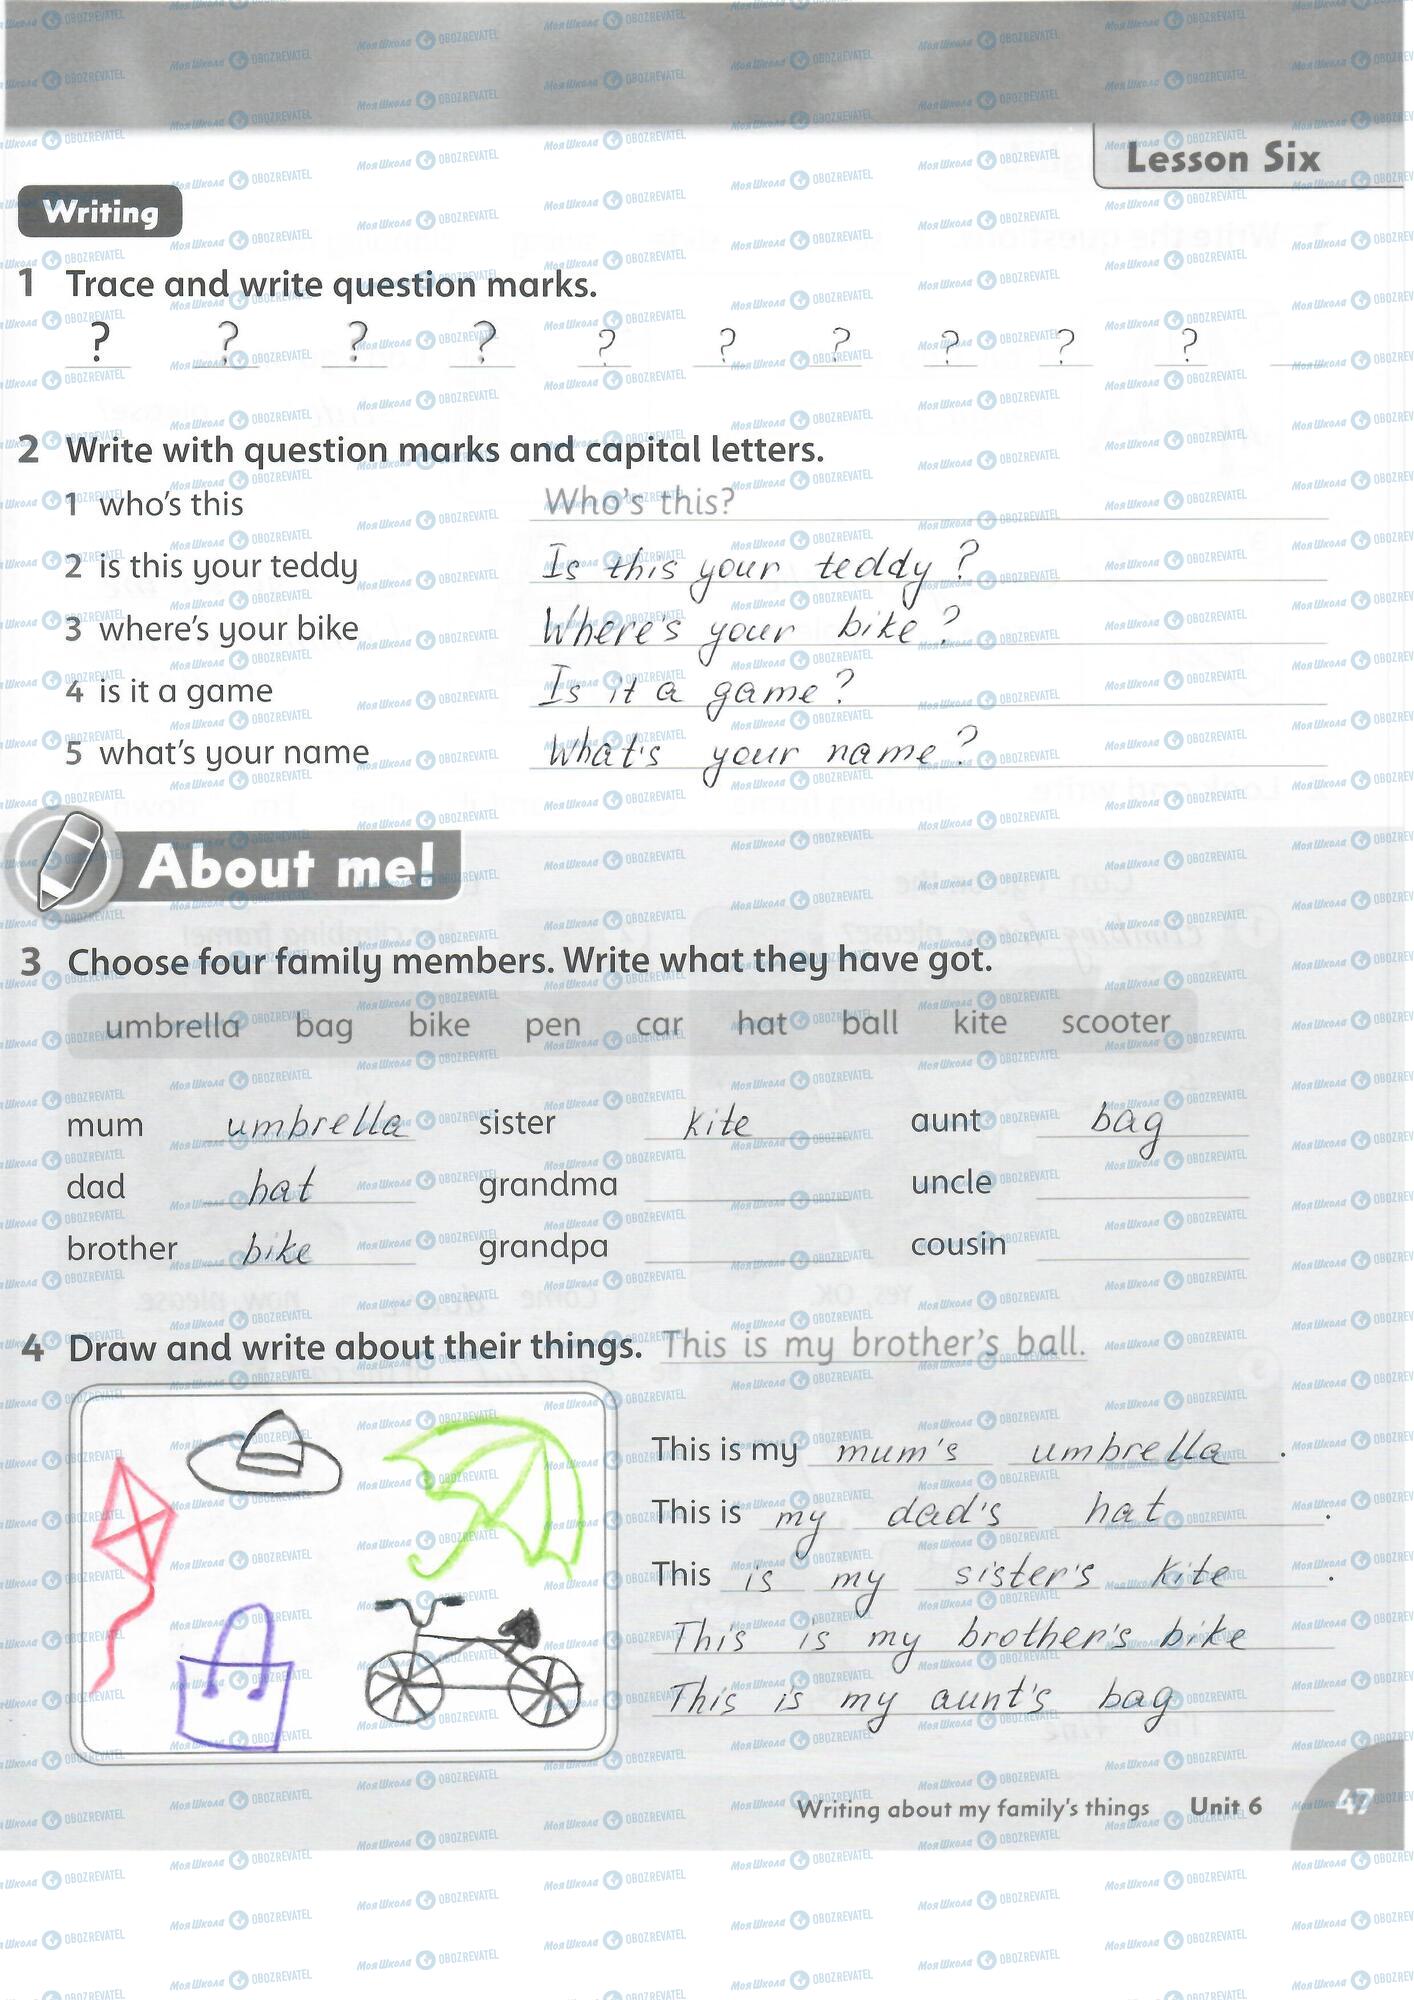 Lesson Six
Writing
1 Trace and write question marks.
? ? ? ? ? ? ? ? ? ?
2 Write with question marks and capital letters.
1 who's this Who's this?
2 is this your teddy Is this your teddy?
3 where's your bike Where's your bike?
4 is it a game Is it a game?
5 what's your name What's your name?
About me!
3 Choose four family members. Write what they have got.
umbrella bag bike pen car hat ball kite scooter
mum umbrella sister kite aunt bag
dad hat grandma uncle
brother bike grandpa cousin
4 Draw and write about their things. This is my brother's ball.
This is my mum's umbrella.
This is my dad's hat.
This is my sister's kite.
This is my brother's bike
This is my aunt's bag
Writing about my family's things Unit 6 47
Моя Школа OBOZREVATEL